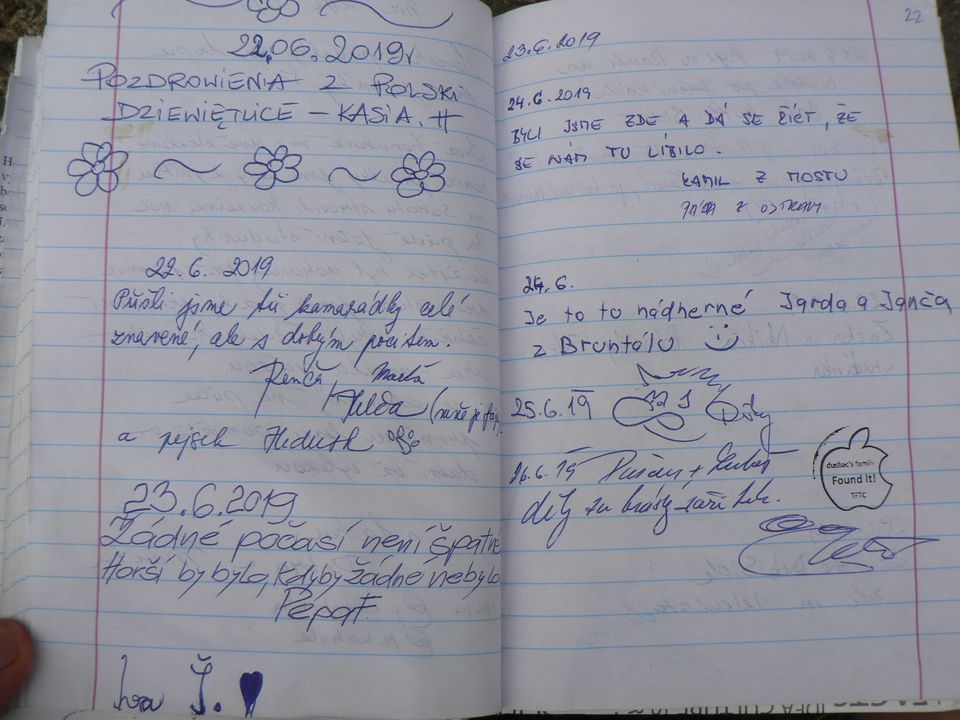 22.06.2019r
POZDROWIENIA Z POLSKI
DZIEWIĘTLICE – KASIA.
22.6. 2019
Přišli jsme tři kamarádky celé
znavené, ale s dobrým pocitem.
Renča, Marta
Helda
a pejsek
23.6.2019
Žádné počasí není špatné
Horší by bylo, kdyby žádné nebylo
Pepa F.
Iva Š.
22
23.6.2019
24.6.2019
BYLI JSME ZDE A DÁ SE ŘÍCT, ŽE
SE NÁM TU LÍBILO.
KAMIL Z MOSTU
Z OSTRAVY
24.6.
Je to tu nádherné Jarda a Janča
z Bruntálu
25.6.19
26.6.19
díky za
dusbac's family
Found it!
TFTC